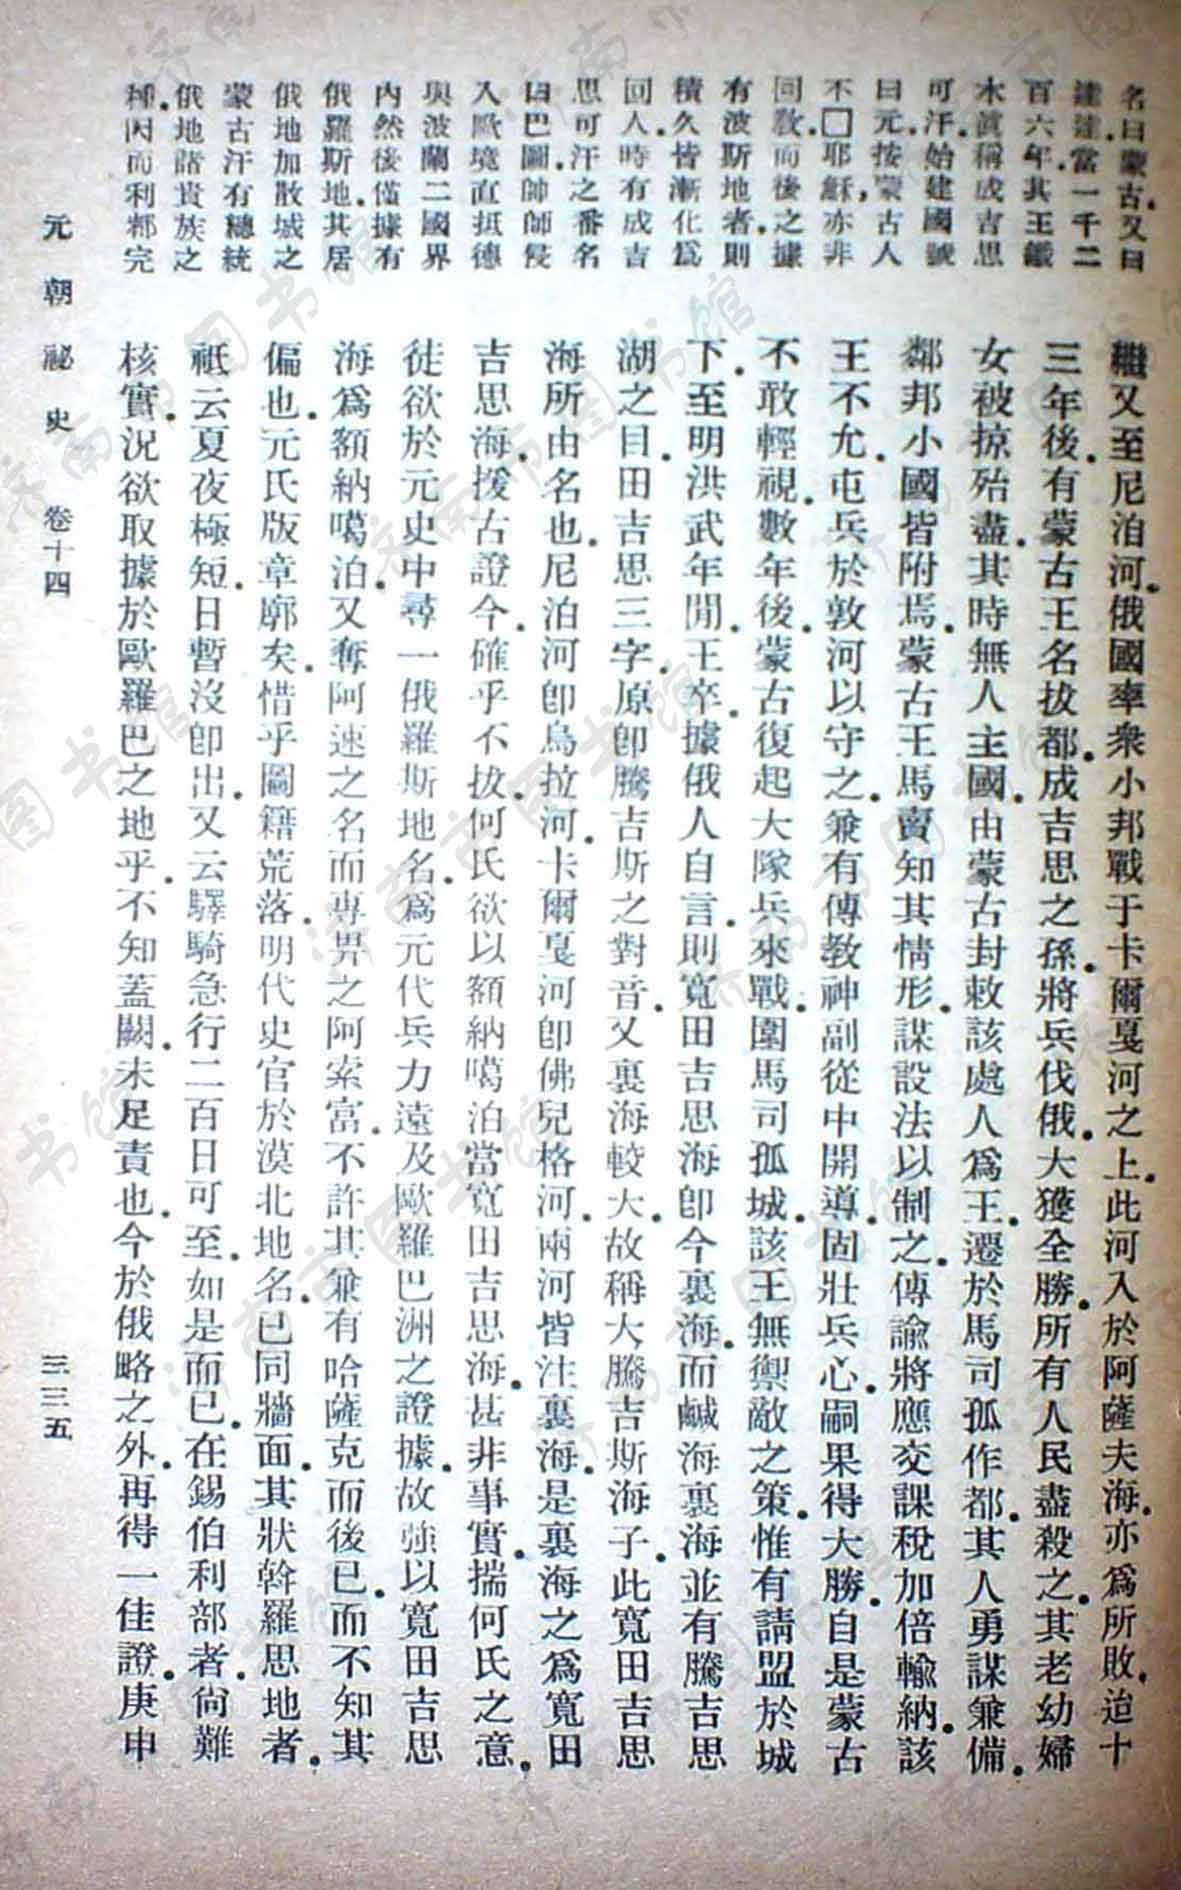 名曰蒙古又曰
達達當一千二
百六年其王鐵
木眞稱成吉思
可汗始建國號
曰元按蒙古人
不□耶穌亦非
同敎而後之據
有波斯地者則
積久皆漸化爲
回人時有成吉
思可汗之番名
曰巴圖帥師侵
入歐境直抵德
與波蘭二國界
內然後僅據有
俄羅斯地其居
俄地加散城之
蒙古汗有總統
俄地諸貴族之
權因而利都完
繼又至尼泊河。俄國率衆小邦戰于卡爾戛河之上。此河入於阿薩夫海。亦爲所敗。迨十
三年後。有蒙古王名拔都。成吉思之孫。將兵伐俄。大獲全勝。所有人民盡殺之。其老幼婦
女被掠殆盡。其時無人主國。由蒙古封敕該處人爲王。遷於馬司孤作都。其人勇謀兼備。
鄰邦小國皆附焉。蒙古王馬賣知其情形。謀設法以制之。傳諭將應交課稅加倍輸納。該
王不允。屯兵於敦河以守之。兼有傳敎神副從中開導。固壯兵心。嗣果得大勝。自是蒙古
不敢輕視。數年後。蒙古復起大隊兵來戰。圍馬司孤城。該王無禦敵之策。惟有請盟於城
下。至明洪武年閒。王卒。據俄人自言。則寬田吉思海卽今裏海。而鹹海裏海並有騰吉思
湖之目。田吉思三字。原卽騰吉斯之對音。又裏海較大。故稱大騰吉斯海子。此寬田吉思
海所由名也。尼泊河卽烏拉河。卡爾戛河卽佛兒格河。兩河皆注裏海。是裏海之爲寬田
吉思海。援古證今。確乎不拔。何氏欲以額納噶泊當寬田吉思海。甚非事實。揣何氏之意。
徒欲於元史中尋一俄羅斯地名。爲元代兵力遠及歐羅巴洲之證據。故強以寬田吉思
海爲額納噶泊。又奪阿速之名而專畀之阿索富。不許其兼有哈薩克而後已。而不知其
偏也。元氏版章廓矣。惜乎圖籍荒落。明代史官於漠北地名。已同牆面。其狀斡羅思地者。
祇云夏夜極短。日暫沒卽出。又云驛騎急行二百日可至。如是而已。在錫伯利部者。尙難
核實。況欲取據於歐羅巴之地乎。不知蓋闕。未足責也。今於俄略之外。再得一佳證。庚申
元朝祕史 卷十四 三三五